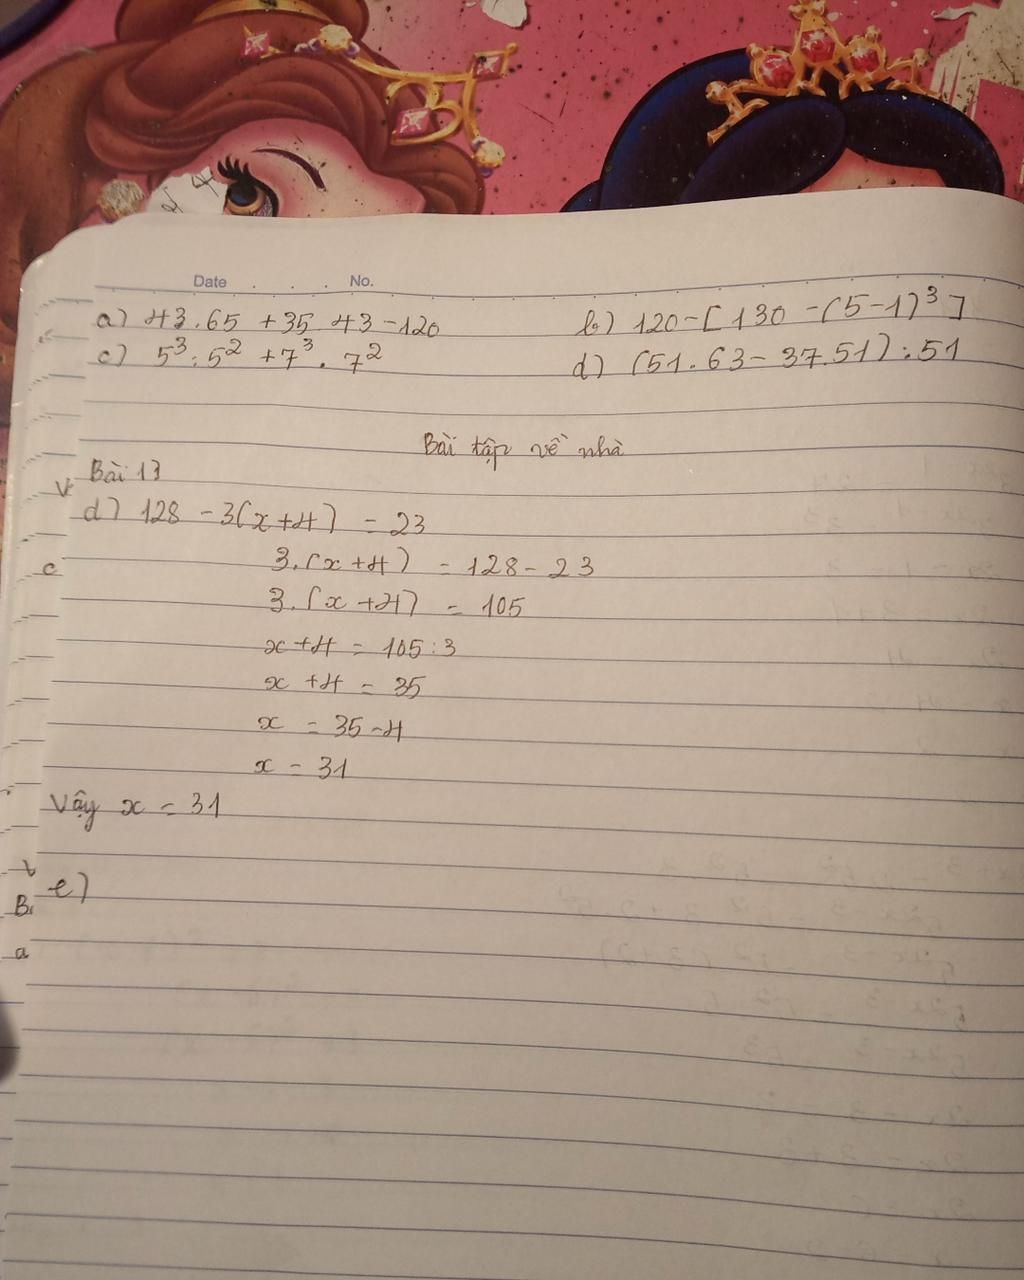 Date . . . . No.
a) 43.65 + 35.43 - 120 b) 120 - [130 - (5-1)³]
c) 5³ : 5² + 7³ . 7² d) (51.63 - 37.51) : 51
Bài tập về nhà
Bài 13
d) 128 - 3(x+4) = 23
3.(x+4) = 128 - 23
3.(x+4) = 105
x+4 = 105 : 3
x+4 = 35
x = 35 - 4
x = 31
Vậy x = 31
e)